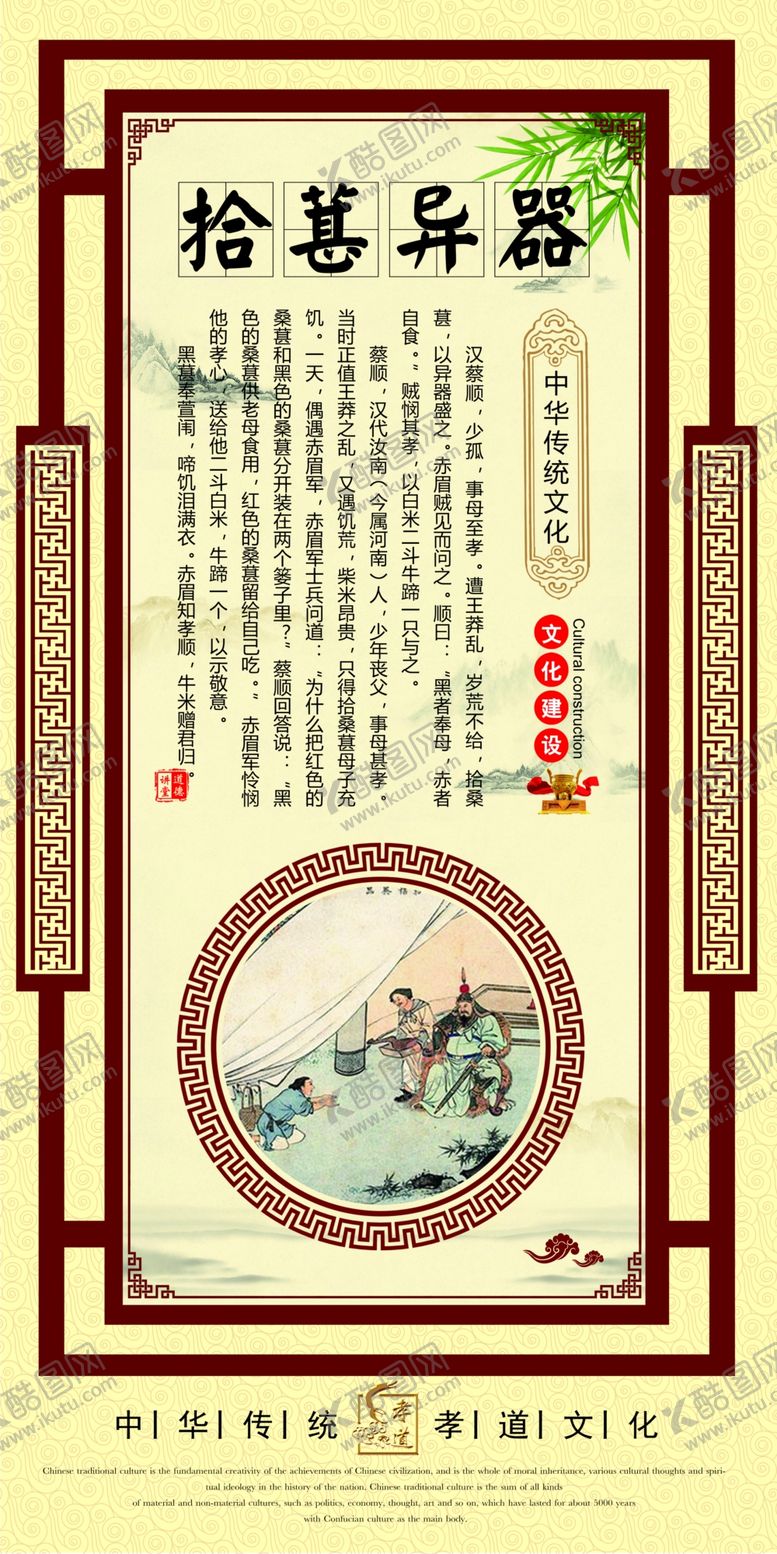 拾葚异器
中华传统文化
文化建设
Cultural construction
汉蔡顺，少孤，事母至孝。遭王莽乱，岁荒不给，拾桑
葚，以异器盛之。赤眉贼见而问之。顺曰：“黑者奉母，赤者
自食。”贼悯其孝，以白米二斗牛蹄一只与之。
蔡顺，汉代汝南（今属河南）人，少年丧父，事母甚孝。
当时正值王莽之乱，又遇饥荒，柴米昂贵，只得拾桑葚母子充
饥。一天，偶遇赤眉军，赤眉军士兵问道：“为什么把红色的
桑葚和黑色的桑葚分开装在两个篓子里？”蔡顺回答说：“黑
色的桑葚供老母食用，红色的桑葚留给自己吃。”赤眉军怜悯
他的孝心，送给他二斗白米，牛蹄一个，以示敬意。
黑葚奉萱闱，啼饥泪满衣。赤眉知孝顺，牛米赠君归。
道德
讲堂
中华传统 孝道 孝道文化
Chinese traditional culture is the fundamental creativity of the achievements of Chinese civilization, and is the whole of moral inheritance, various cultural thoughts and spiri-
tual ideology in the history of the nation. Chinese traditional culture is the sum of all kinds
of material and non-material cultures, such as politics, economy, thought, art and so on, which have lasted for about 5000 years
with Confucian culture as the main body.
酷图网
www.ikutu.com